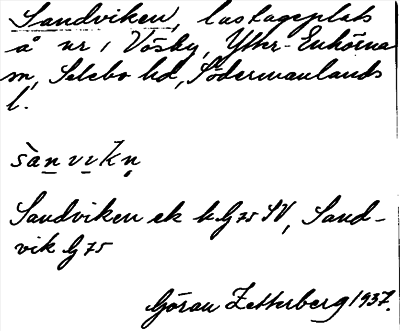 Sandviken, lastageplats
å nr 1 Väsby, Ytter-Enhörna
sn, Selebo hd, Södermanlands
l.
sànvikn
Sandviken ek k Gj75 SV, Sand-
vik Gj75
Göran Zetterberg 1937.